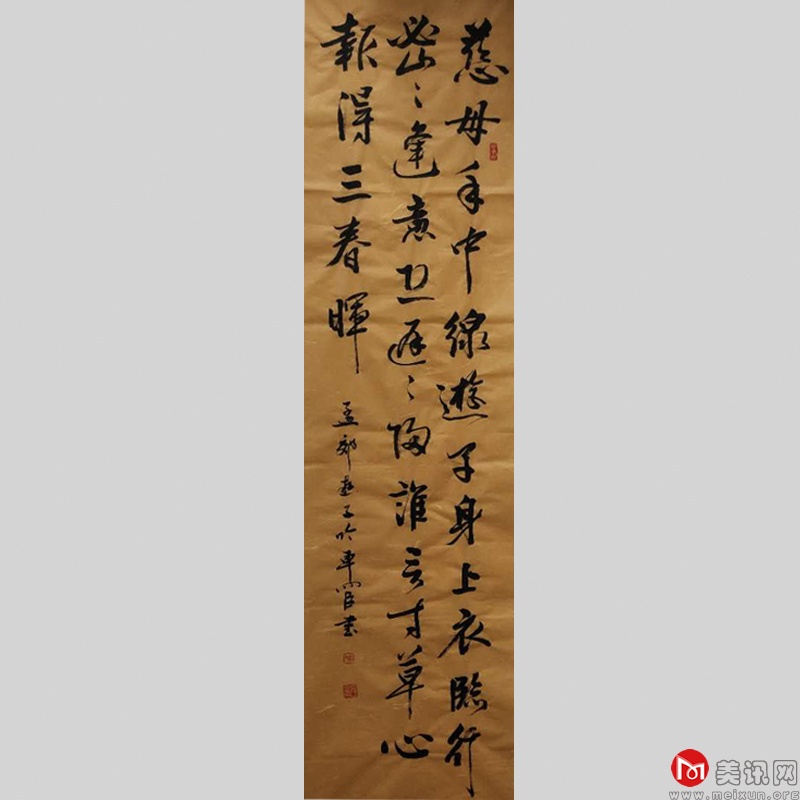 慈母手中線遊子身上衣臨行
密〻逢意恐遲〻歸誰言寸草心
報得三春暉
孟郊遊子吟 書
美讯网
www.meixun.org